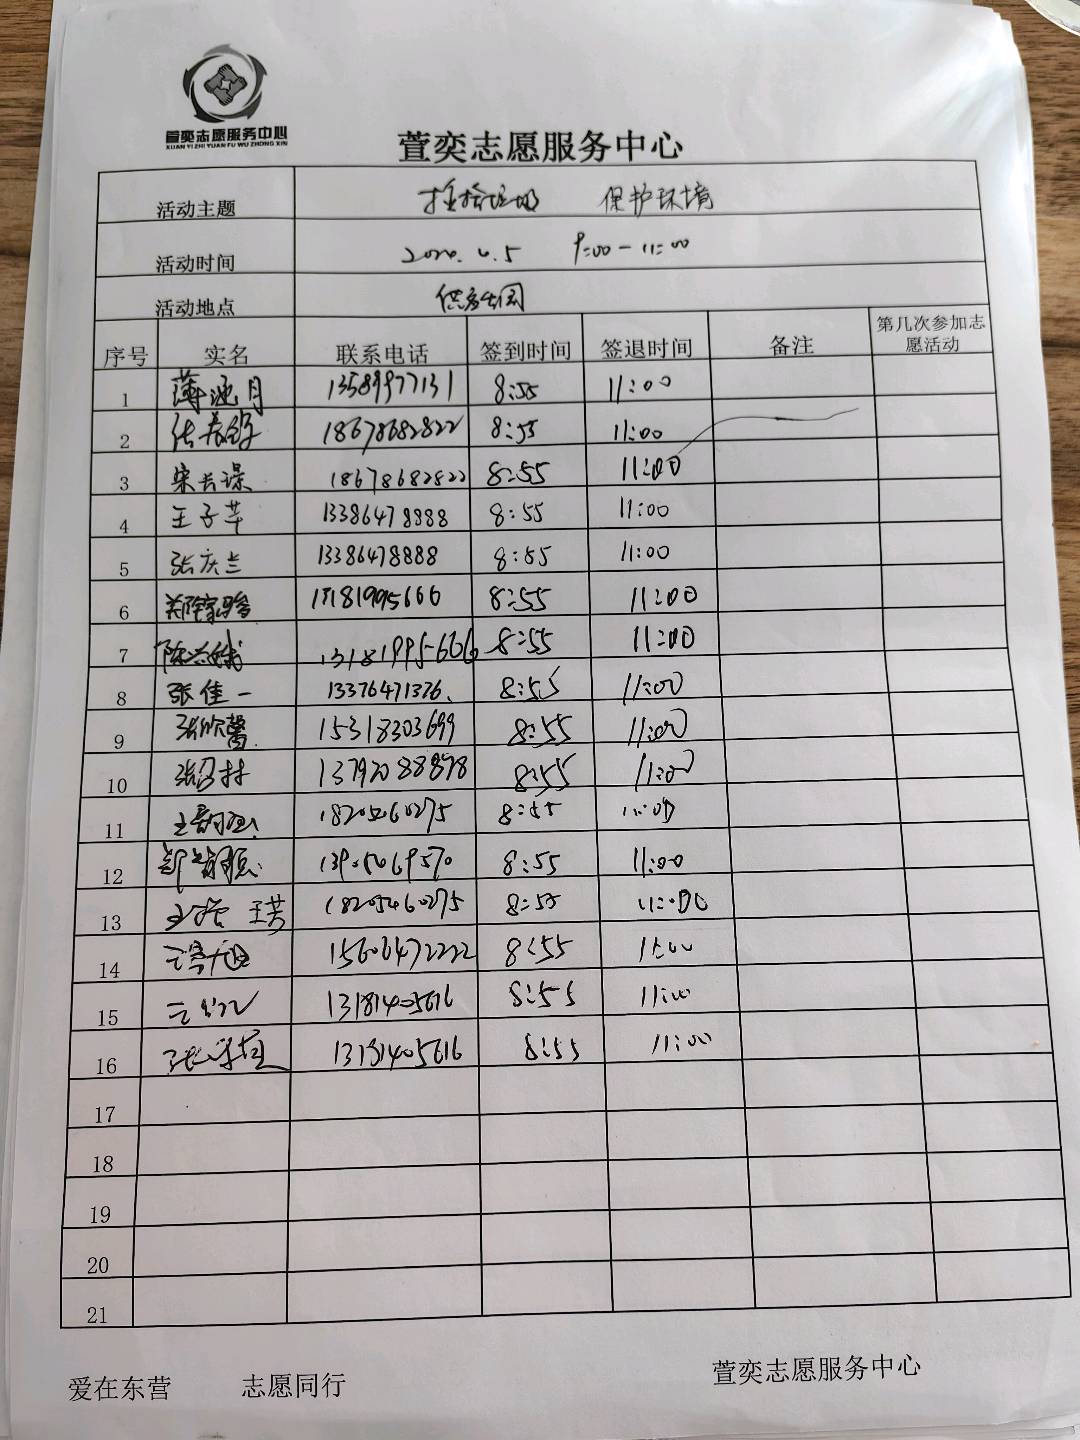 萱奕志愿服务中心
XUAN YI ZHI YUAN FU WU ZHONG XIN
萱奕志愿服务中心
活动主题 捡拾垃圾 保护环境
活动时间 2020.4.5 9:00-11:00
活动地点
序号 实名 联系电话 签到时间 签退时间 备注 第几次参加志愿活动
1 薄涵月 13589977131 8:55 11:00
2 18678682822 8:55 11:00
3 宋长璟 18678682822 8:55 11:00
4 王子芊 13386478888 8:55 11:00
5 张庆兰 13386478888 8:55 11:00
6 13181995666 8:55 11:00
7 13181995666 8:55 11:00
8 张佳一 13376471326 8:55 11:00
9 张欣馨 15318303699 8:55 11:00
10 13792088898 8:55 11:00
11 18205460275 8:55 11:00
12 13905469570 8:55 11:00
13 王芳 18205460275 8:55 11:00
14 15606472222 8:55 11:00
15 13181405616 8:55 11:00
16 13181405616 8:55 11:00
17
18
19
20
21
爱在东营 志愿同行 萱奕志愿服务中心